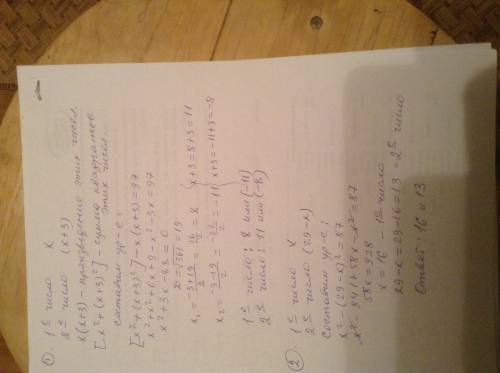 ① 1ое число x
2ое число (x+3)
x(x+3) - произведение этих чисел.
[x²+(x+3)²] - сумма квадратов
этих чисел.
составим ур-е:
[x²+(x+3)²]-x(x+3)=97
x²+x²+6x+9-x²-3x=97
x²+3x-88=0
D=√361=19
x₁=(-3+19)/2=16/2=8 (x+3=8+3=11
x₂=(-3-19)/2=-22/2=-11 (x+3=-11+3=-8
1ое число: 8 или (-11)
2ое число: 11 или (-8)
② 1ое число x
2ое число (29-x)
составим ур-е:
x²-(29-x)²=87
x²-841+58x-x²=87
58x=928
x=16 - 1ое число
29-x=29-16=13 - 2ое число
Ответ: 16 и 13